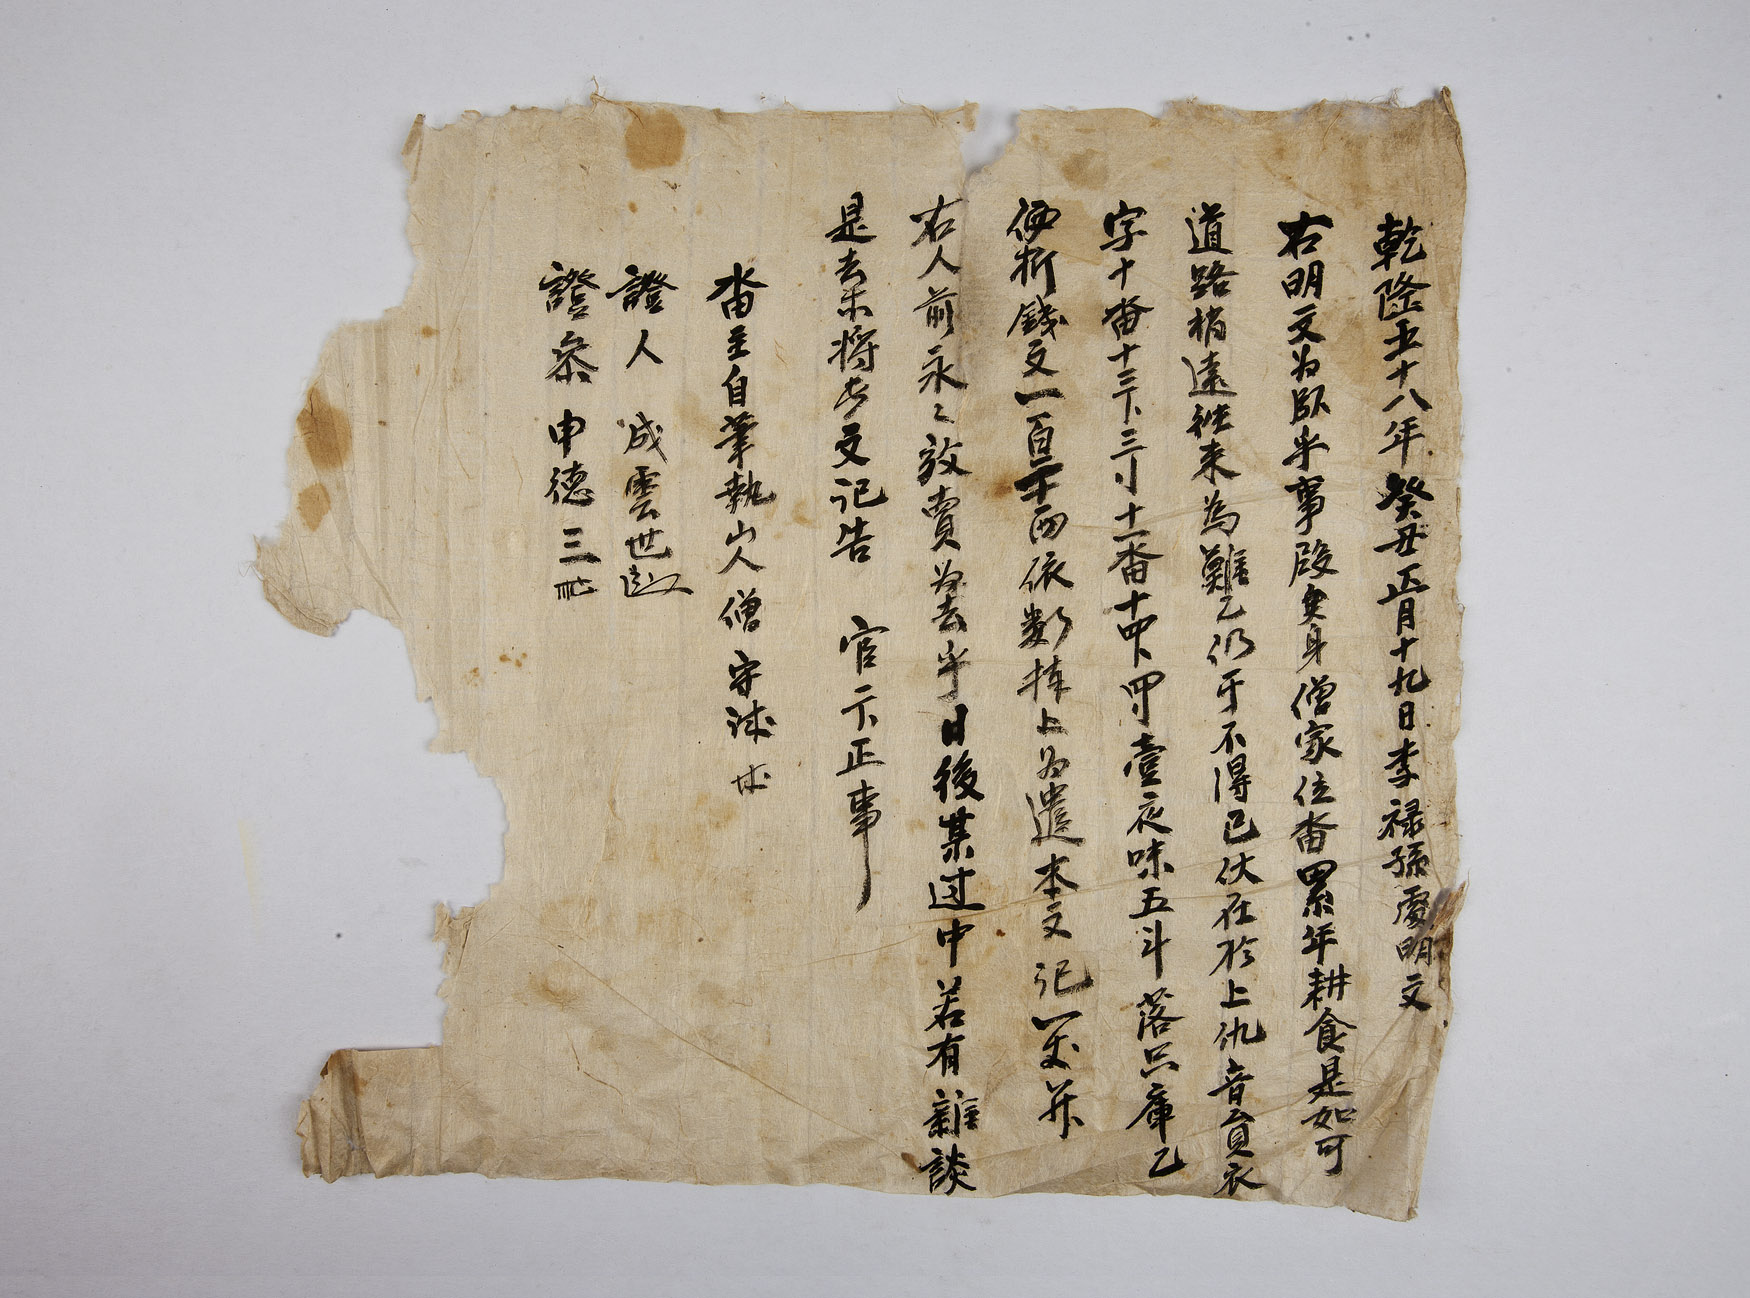 乾隆五十八年癸丑正月十九日李祿孫處明文
右明文爲臥乎事段矣身僧家位畓累年耕食是如可
道路稍遠徃来為難乙仍于不得已伏在於上仇音員衣
字十畓十三卜三寸十一畓十四卜四寸壹夜味五斗落只庫乙
価折錢文一百二十両依數捧上為遣本文記一丈并
右人前永々放賣為去乎日後某过中若有雜談
是去未將此文記告 官卞正事
畓主自筆執山人僧守
證人 成雲世
證參 申德三